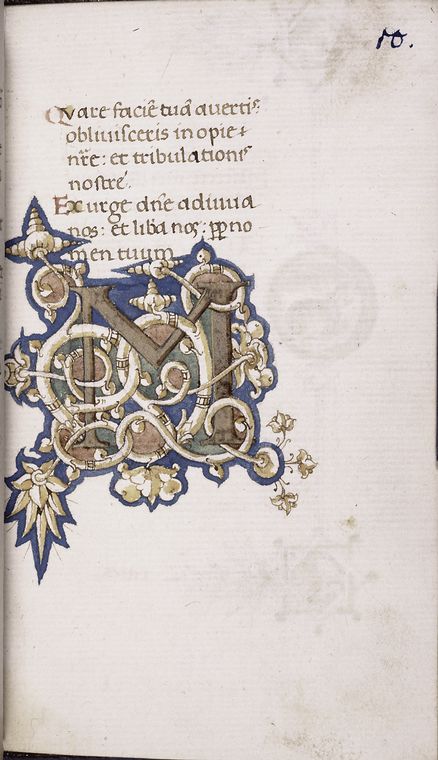 10.
Quare faciē tuā auertis:
obliuisceris inopie
nr̄e: et tribulationis
nostre.
Exurge dn̄e adiuua
nos: et liba nos: ꝓpno
men tuum
M